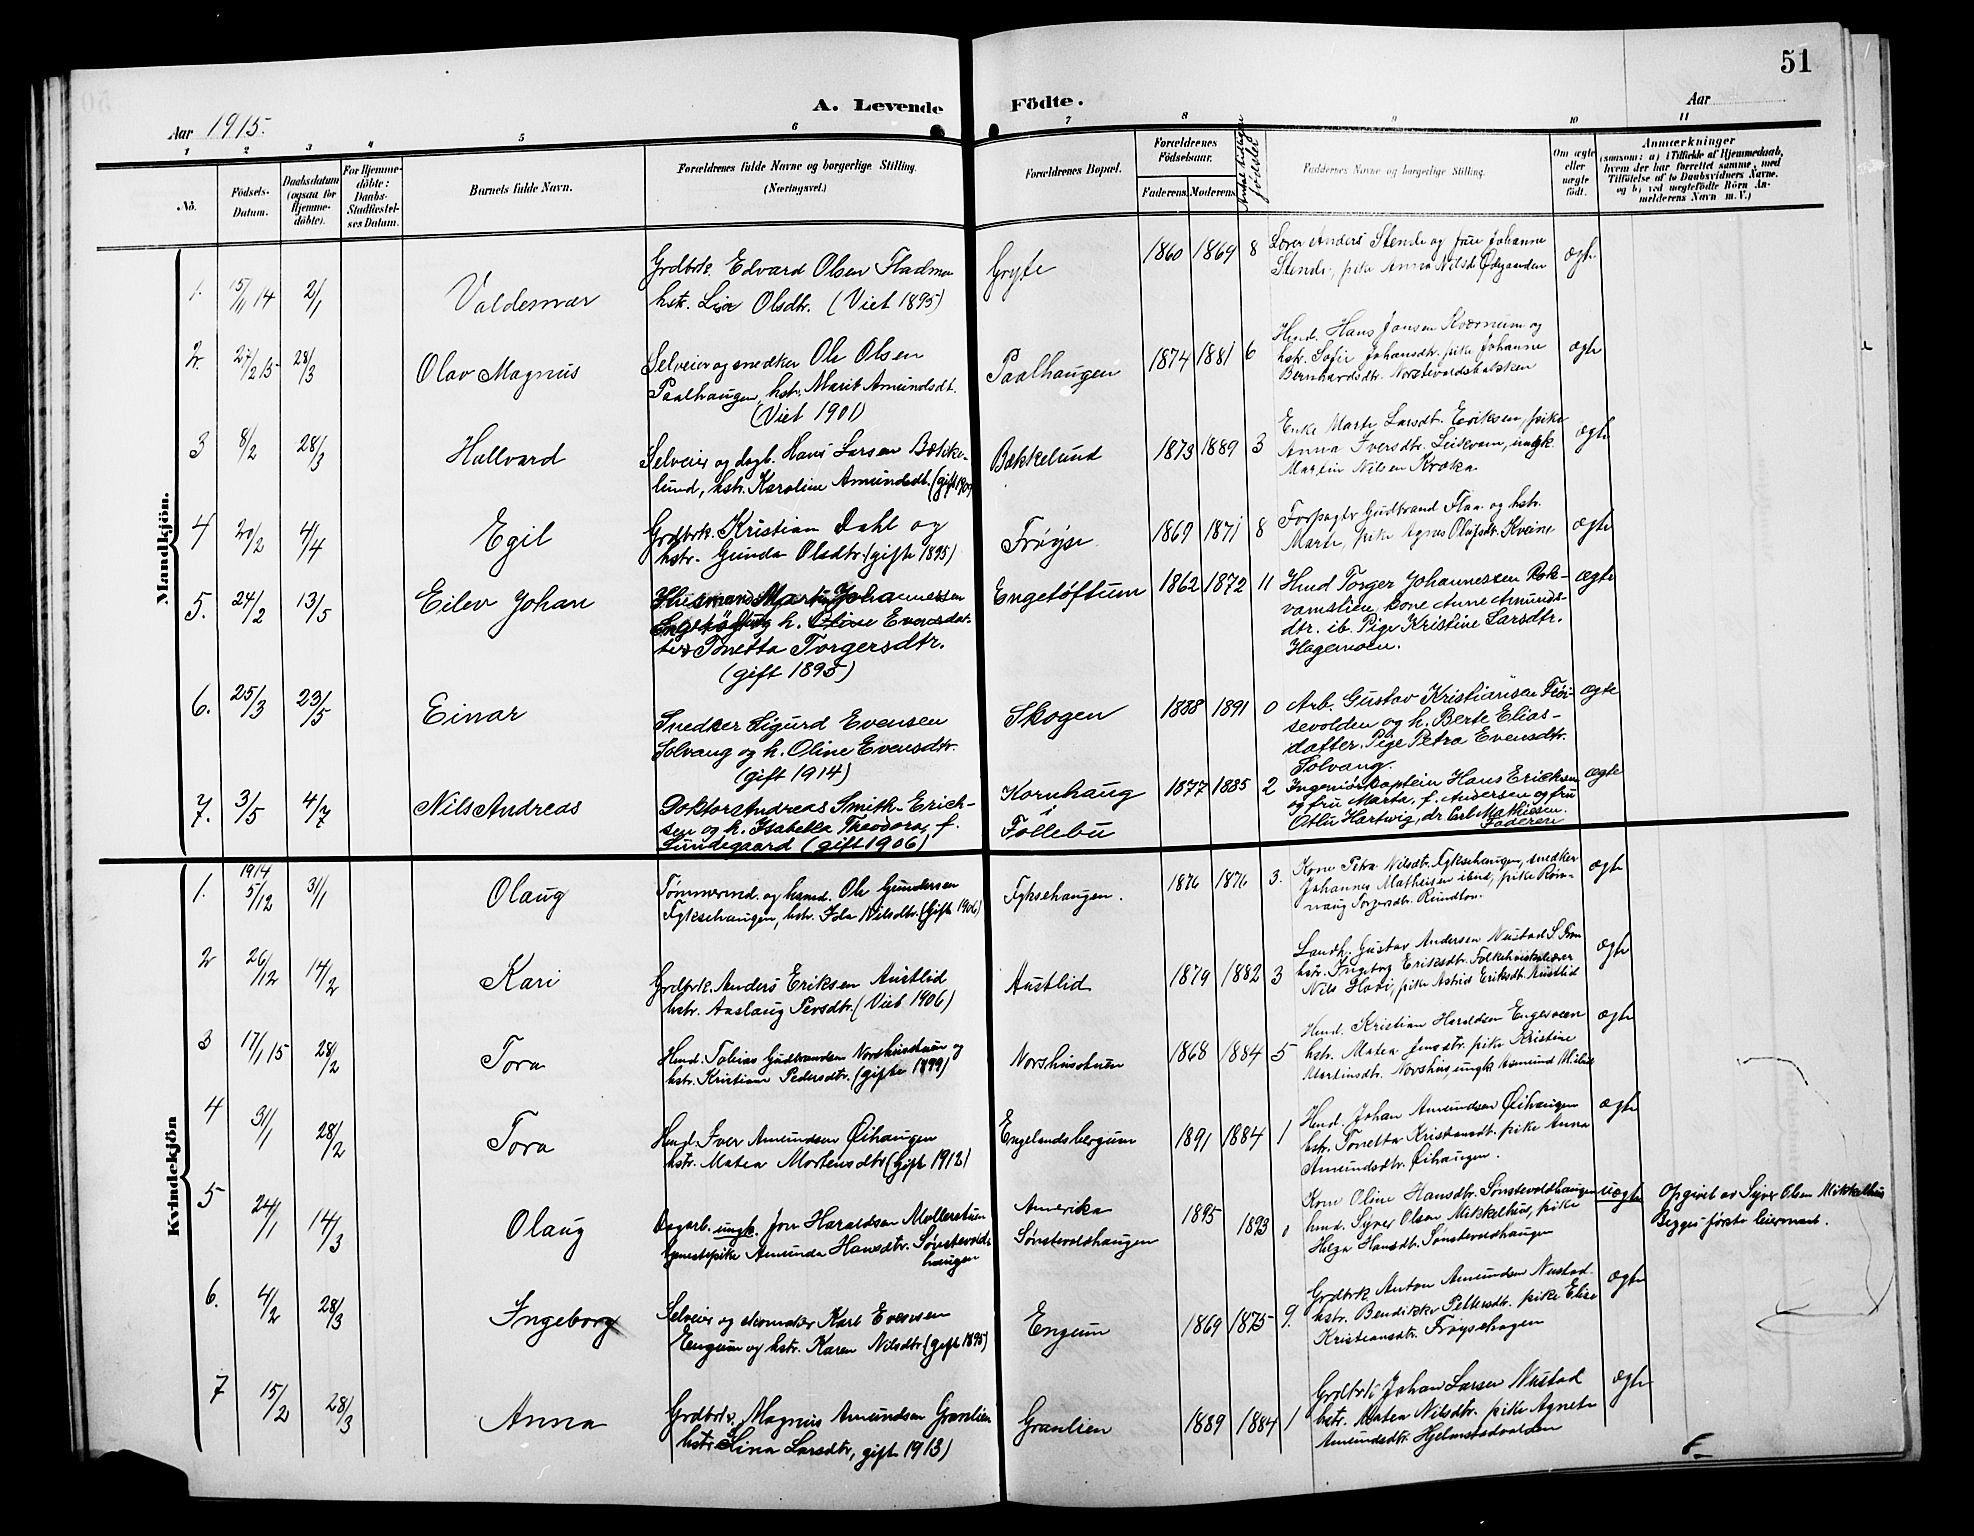 51
A. Levende Födte.
Aar 1915.
Aar
1 2 3 4 5 6 7 8 9 10 11
No.
Födsels-Datum.
Daabsdatum (ogsaa for Hjemme-döbte).
For Hjemme-döbte: Daabs-Stadfæstel-ses Datum.
Barnets fulde Navn.
Forældrenes fulde Navne og borgerlige Stilling. (Næringsvei.)
Forældrenes Bopæl.
Forældrenes Födselsaar.
Faderens.
Moderens.
Antal tidligere fødsler
Faddernes Navne og borgerlige Stilling.
Om ægte eller uægte født.
Anmærkninger
(saasom: a) i Tilfælde af Hjemmedaab,
hvem der har forrettet samme, med
Tilföielse af to Daabsvidners Navne.
og b) ved uægtefödte Börn An-
melderens Navn m. V.)
Mandkjön.
1. 15/11 14 2/1 Valdemar
Grdbrk. Edvard Olsen Fladmoe
hstr. Lise Olsdtr. (Viet 1895)
Gryte 1860 1869 8
Lærer Anders Stende og frue Johanne
Stende, pike Anna Nilsdt. Ødegaarden
ægte
2. 27/2 15 28/3 Olav Magnus
Selveier og snedker Ole Olsen
Paalhaugen, hstr. Marit Amundsdt.
(Viet 1901)
Paalhaugen 1874 1881 6
Hmd. Hans Jansen Kværnum og
hstr. Sofie Johansdtr. pike Johanne
Bernhardsdtr.
ægte
3 8/2 28/3 Hallvard
Selveier og dagb. Hans Larsen Bække-
lund, hstr. Karoline Amundsdt. (gift 1909
Bakkelund 1873 1889 3
Enke Marte Larsdtr. Eriksen, pike
Anna Iversdtr. Leikvam, ungk.
Martin Nilsen Kroka
ægte
4 20/2 4/4 Egil
Grdbrk. Kristian Dahl og
hstr. Gunda Olsdtr. (gift 1895)
Frøyse 1869 1871 8
Forpagter Gudbrand Flaa og hstr.
Marte, pike Agnes Olufsdtr. Kveine
ægte
5. 24/2 13/5 Eilev Johan
Husmand Martin Johannessen
Engetøftum h. Oline Evensdat-
ter Tonetta Torgersdtr.
(gift 1895)
Engetøftum 1862 1872 11
Hmd Torger Johannessen Rok-
vamslien, kone Anne Amunds-
dtr. ib. Pige Kristine Larsdtr.
Hagemoen.
ægte
6. 25/3 23/5 Einar
Snedker Sigurd Evensen
Solvang og h. Oline Evensdtr.
(gift 1914)
Skogen 1888 1891 0
Arb. Gustav Kristiansen Frøi-
sevolden og h. Berte Elias-
datter. Pige Petra Evensdtr.
Solvang.
ægte
7. 3/5 4/7 Nils Andreas
Doktor Andreas Smith-Erich-
sen og h. Isabella Theodora, f.
Lundegaard (gift 1906)
Kornhaug i Follebu 1877 1885 2
Ingeniørkaptein Hans Ericksen
og fru Marta, f. Andersen og fru
Otlu Hartwig, dr. Carl Mathiesen.
Faderen
ægte
Kvindekjön
1. 1914 5/12 31/1 Olaug
Tømmermd. og husmd. Ole Gundersen
Fyksehaugen, hstr. Ida Nilsdtr. (Gifte 1906)
Fyksehaugen. 1876 1876 3.
Kone Petra Nilsdtr. Fyksehaugen, snedker
Johannes Mathisen ibid, pike Røn-
naug Torgersdtr.
ægte
2 26/12 14/2 Kari
Grdbrk. Anders Eriksen Austlid
hstr. Aaslaug Persdtr. (Viet 1906)
Austlid 1879 1882 3
Landh. Gustav Andersen Nustad S. Fron
hstr. Ingeborg Eriksdtr. Folkehöiskolelærer
Nils Hovi, pike Astrid Eriksdt. Austlid
ægte
3 17/1 15 28/2 Tora
Hmd. Tobias Gudbrandsen Norshusstuen og
hstr. Kristiane Pedersdtr. (gifte 1899)
Norshusstuen 1868 1884 5
Hmd. Kristian Haraldsen Engesveen
hstr. Matea Jensdtr. pike Kristine
Martinsdtr. Norshus, ungk Asmund
ægte
4 31/1 28/2 Tora
Hmd. Iver Amundsen Øihaugen
hstr. Matea Mortensdtr (Gift 1912)
Engelandsbergum 1891 1884 1
Hmd. Johan Amundsen Øihaugen
hstr. Tonetta Kristiansdt. pike Anna
Amundsdtr. Øihaugen.
ægte
5 24/1 14/3 Olaug
Dagarb. ungk. Jon Haraldsen Mollerstuen
tjenestepike Amunda Hansdtr. Sønstevold-
haugen
Amerika
Sønstevoldhaugen 1895 1893 0
Kone Oline Hansdtr. Sønstevoldhaugen
hmd. Syver Olsen Mikkelhus, pike
Helga Hansdtr. Sønstevoldhaugen
uægte
Opgivet av Syver Olsen Mikkelhus
Begges første leiermaal.
6. 4/2 28/3 Ingeborg
Selveier og skomaker Karl Evensen
Engum og hstr. Karen Nilsdtr (gift 1895)
Engum 1869 1875 9.
Grdbrk. Anton Amundsen Nustad.
hstr. Bendikke Pettersdtr. pike Elise
Kristiansdtr. Frøysehagen
ægte
7 15/2 28/3 Anna
Grdbrk. Magnus Amundsen Granlien
hstr. Lina Larsdtr, gift 1913)
Granlien 1889 1884 1
Grdbrk Johan Larsen Nustad
hstr. Matea Nilsdtr. pike Agnete
Amundsdtr. Hjelmstadvolden
ægte